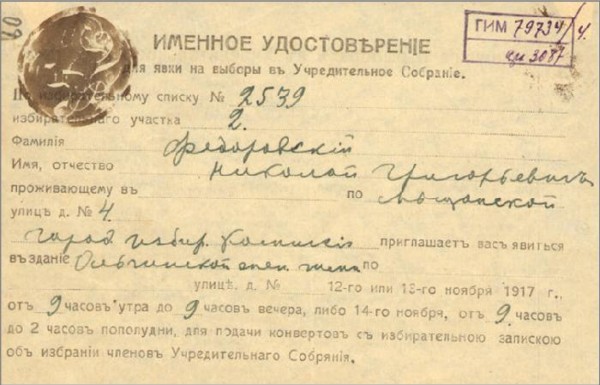 60
ГИМ 79734/4.
ИМЕННОЕ УДОСТОВѢРЕНІЕ
для явки на выборы въ Учредительное Собраніе.
По избирательному списку № 2539
избирательнаго участка 2.
Фамилія Федоровскій
Имя, отчество Николай Григорьевичъ
проживающему въ по Мѣщанской
улицѣ д. № 4.
город избир. Комиссія приглашаетъ васъ явиться
въ зданіе Ольгинской по
улицѣ, д. № 12-го или 13-го ноября 1917 г.,
отъ 9 часовъ утра до 9 часовъ вечера, либо 14-го ноября, отъ 9 часовъ
до 2 часовъ пополудни, для подачи конвертовъ съ избирательною запискою
объ избраніи членовъ Учредительнаго Собрянія.